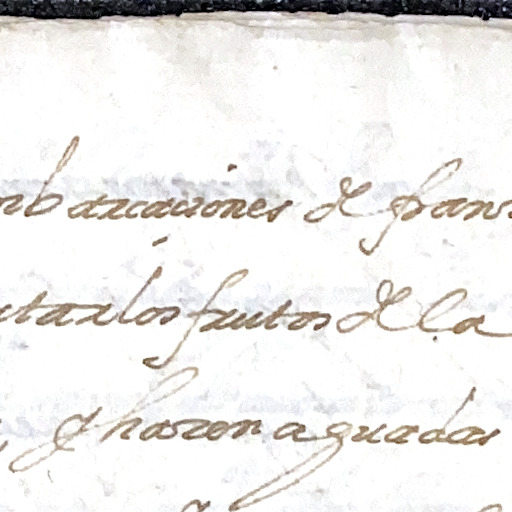 mbarcaciones de fran
tar los frutos de la
y hazer aguadas